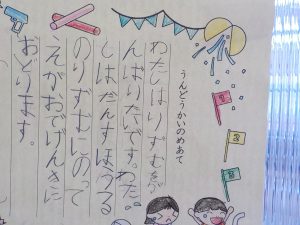 うんどうかいのめあて
わたしはりずむをが
んばりたいです。わた
しはだんすほうる
のりずむにのって
えがおでげんきに
おどります。